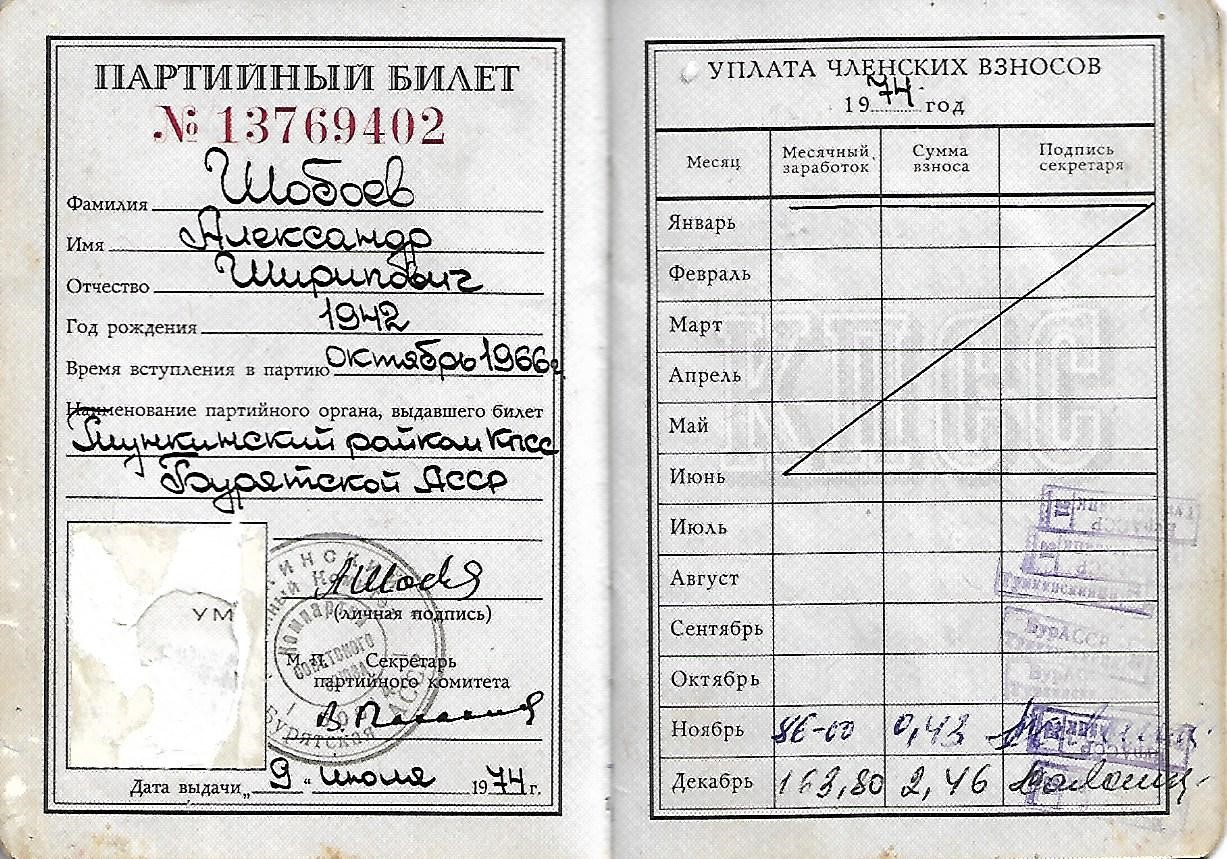 ПАРТИЙНЫЙ БИЛЕТ
№ 13769402
Фамилия Шобоев
Имя Александр
Отчество Ширипович
Год рождения 1942
Время вступления в партию октябрь 1966 г.
Наименование партийного органа, выдавшего билет
Тункинский райком КПСС
Бурятской АССР
УМ
(личная подпись)
М. П. Секретарь
партийного комитета
Дата выдачи „ 9 “ июля 1974 г.
УПЛАТА ЧЛЕНСКИХ ВЗНОСОВ
1974 год
Месяц Месячный заработок Сумма взноса Подпись секретаря
Январь
Февраль
Март
Апрель
Май
Июнь
Июль
Август
Сентябрь
Октябрь
Ноябрь 86-00 0,43
Декабрь 163,80 2,46